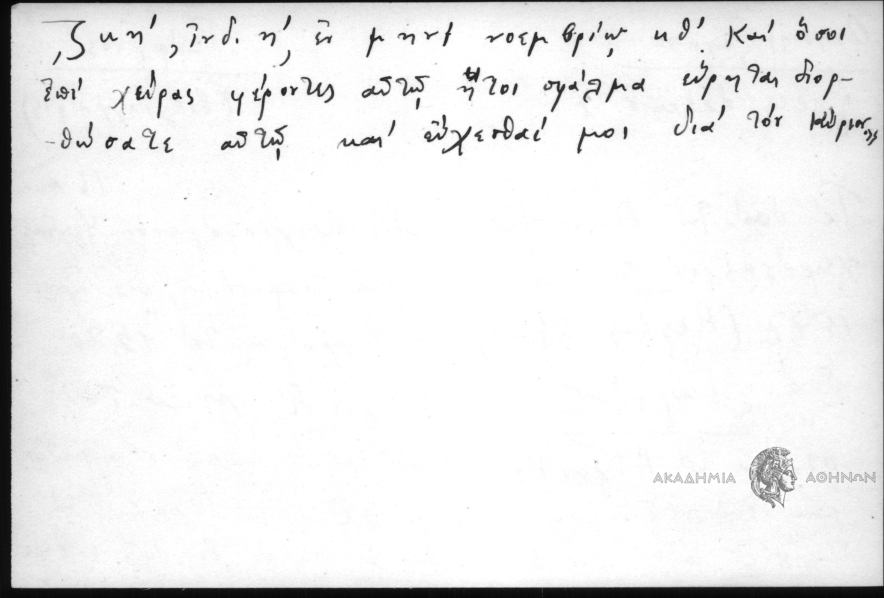 ͵ζκη΄, ἰνδι. η΄, ἐν μηνὶ νοεμβρίῳ κθ΄. Καὶ ὅσοι
ἐπὶ χεῖρας φέροντες αὐτῷ ἤτοι σφάλμα εὕρηται διορ-
-θώσατε αὐτῷ καὶ εὔχεσθαί μοι διὰ τὸν Κύριον
ΑΚΑΔΗΜΙΑ ΑΘΗΝΩΝ